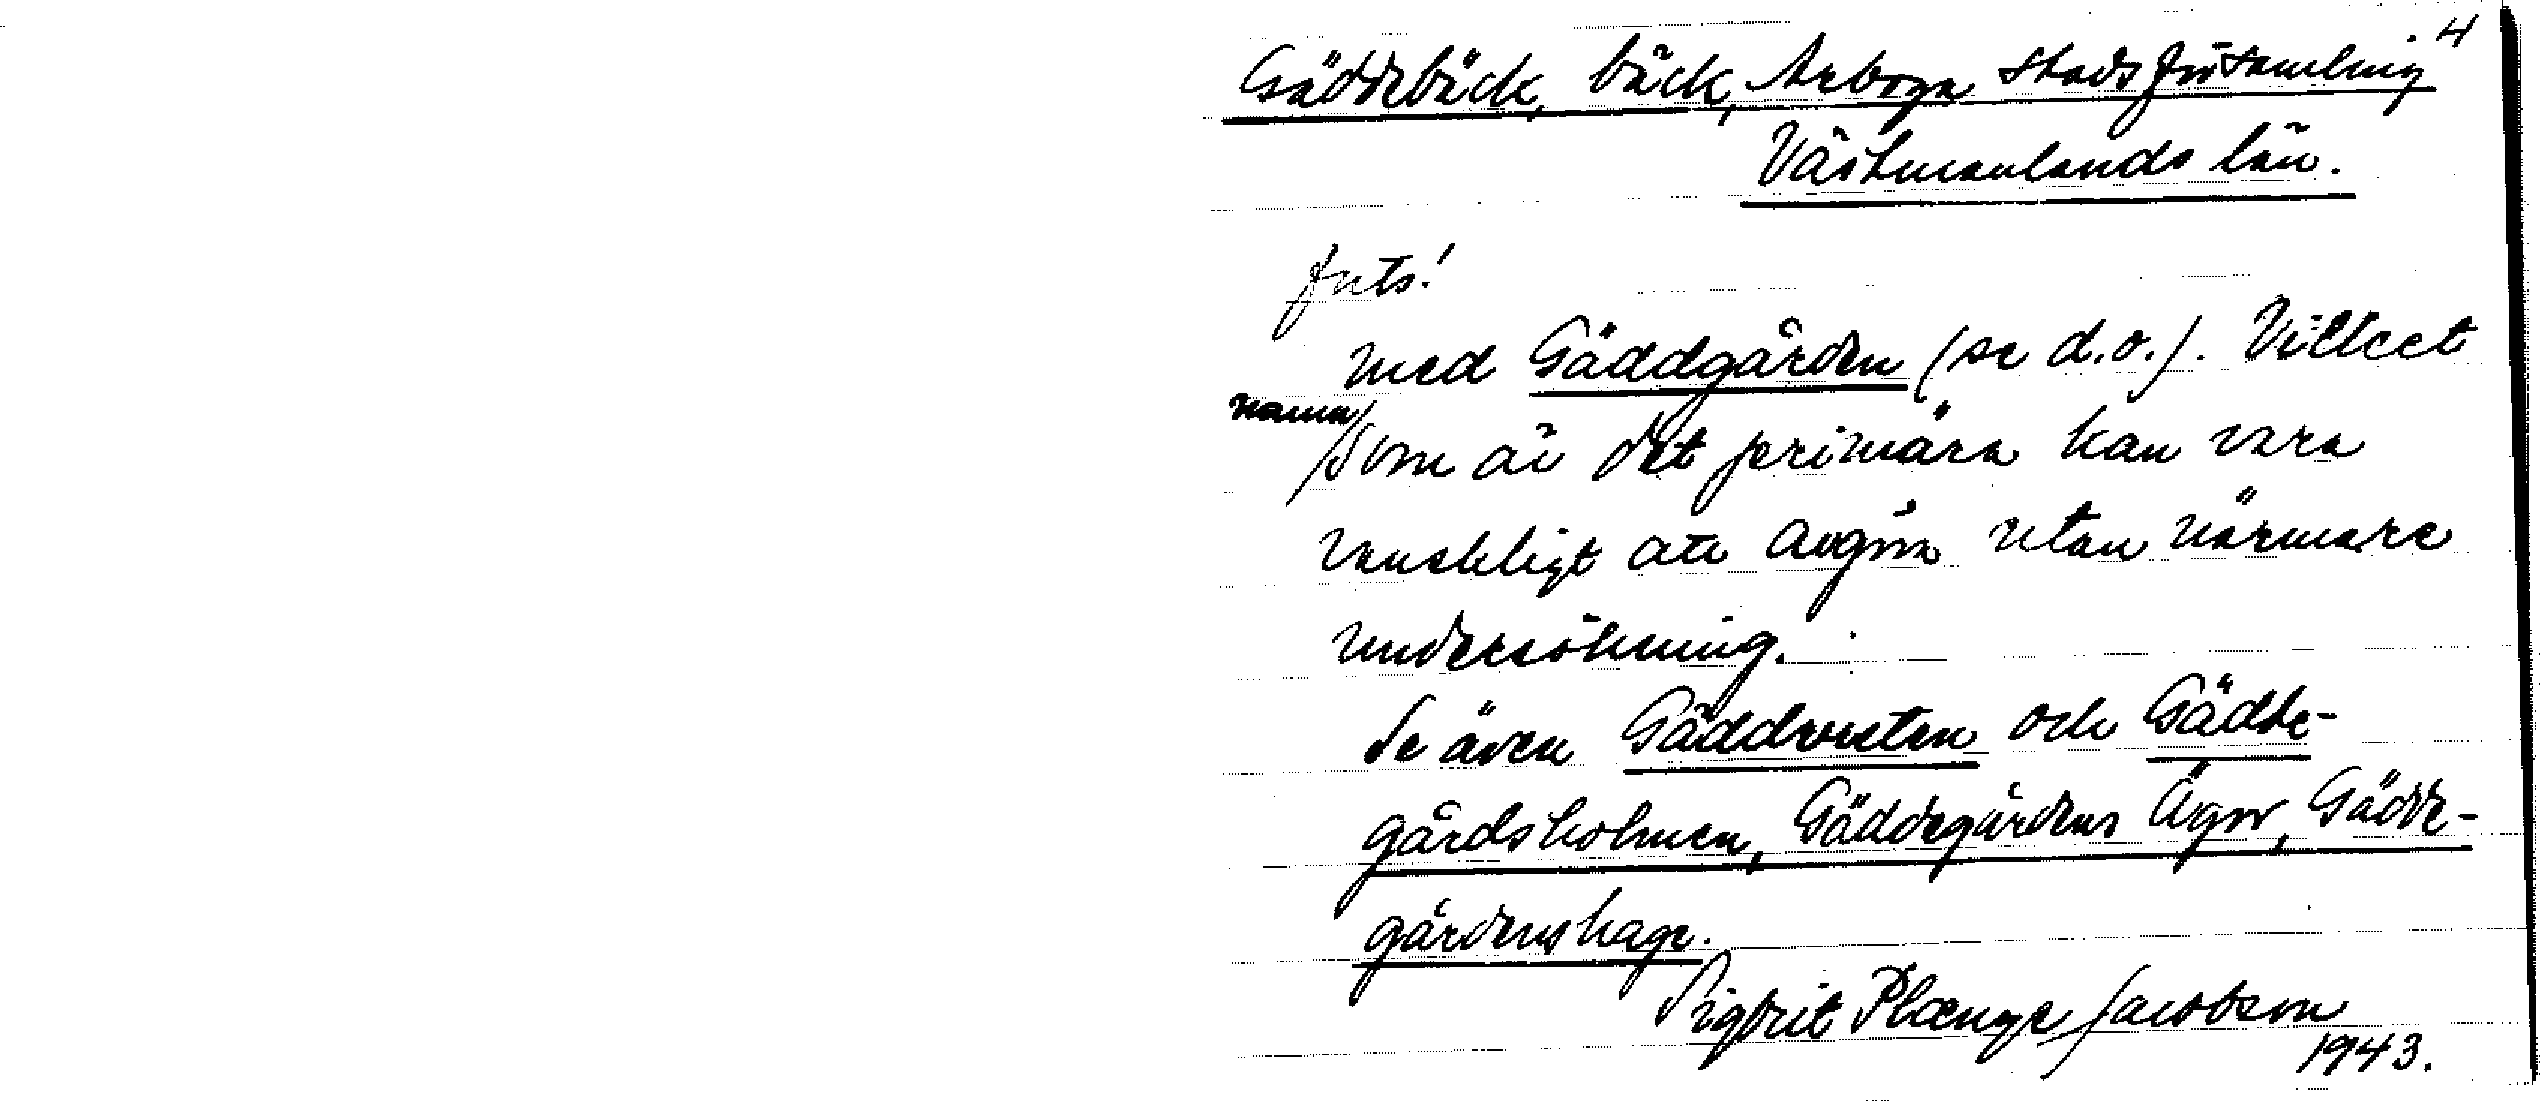 4
Gäddebäck, bäck, Arboga stadsförsamling
Västmanlands län.
forts!
med Gäddgården (se d.o.). Vilket
namn
som är det primära kan vara
vanskligt att avgöra utan närmare
undersökning.
Se även Gäddrosten och Gädde-
gårdsholmen, Gäddegårdens Ägor, Gädde-
gårdenshage.
Sigbrit Plænge Jacobson
1943.